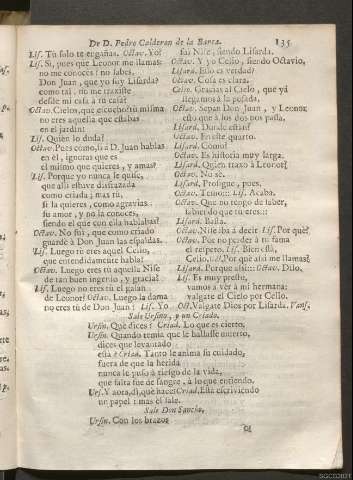 De D. Pedro Calderon de la Barca. 135
Lis. Tù solo te engañas. Octav. Yo?
Lis. Si, pues que Leonor me llamas:
no me conoces? no sabes,
Don Juan, que yo soy Lisarda?
como tal, no me traxiste
desde mi casa à tu casa?
Octav. Cielos, que es lo que
no eres aquella que estabas
en el jardin?
Lis. Quièn lo duda?
Octav. Pues como, si à D. Juan hablas
en èl, ignoras que es
el mismo que quieres, y amas?
Lis. Porque yo nunca le quise,
que alli estuve disfrazada
como criada; mas tù,
si la quieres, como agravias
su amor, y no la conoces,
siendo el que con ella hablabas?
Octav. No fui, que como criado
guardè à Don Juan las espaldas.
Lis. Luego tù eres aquel Celio,
que entendidamente habla?
Octav. Luego eres tù aquella Nise
de tan buen ingenio, y gracia?
Lis. Luego no eres tù el galàn
de Leonor? Octav. Luego la dama
no eres tù de Don Juan? Lis. Yo
fui Nise, siendo Lisarda.
Octav. Y yo Celio, siendo Octavio,
Lisard. Esso es verdad?
Octav. Cosa es clara.
Celio. Gracias al Cielo, que yà
llegamos à la posada.
Octav. Sepan Don Juan, y Leonor
esto que à los dos nos passa.
Lisard. Donde estàn?
Octav. En este quarto.
Lisard. Còmo?
Octav. Es historia muy larga.
Lisard. Quien traxo à Leonor?
Octav. No sè.
Lisard. Prosigue, pues.
Octav. Temo:: Lis. Acaba.
Octav. Que no tengo de saber,
sabiendo que tu eres:::
Lisard. Basta.
Octav. Nise iba à decir. Lis. Por què?
Octav. Por no perder à tu fama
el respeto. Lis. Bien està,
Celio. Oct. Por què assi me llamas?
Lisard. Porque assi::: Octav. Dilo.
Lis. Es muy presto,
vamos à vèr à mi hermana:
valgate el Cielo por Celio.
Oct. Valgate Dios por Lisarda. Vans.
Sale Ursino, y un Criado.
Ursin. Què dices? Criad. Lo que es cierto.
Ursin. Quando temia que le hallasse muerto,
dices que levantado
està? Criad. Tanto le anima su cuidado,
fuera de que la herida
nunca le puso à riesgo de la vida,
que salta fue de sangre, à lo que entiendo.
Urs. Y aora, dì, què hace? Criad. Està escriviendo
un papel: mas èl sale.
Sale Don Sancho.
Ursin. Con los brazos